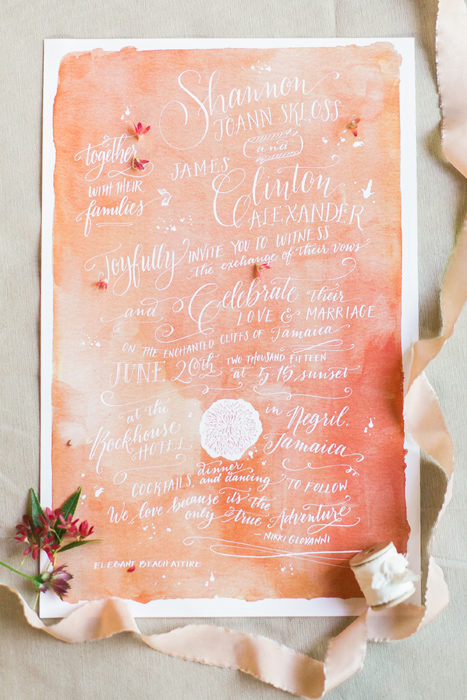 Shannon
JOANN SKLOSS
and
together
WITH THEIR
families
JAMES
Clinton
ALEXANDER
Joyfully INVITE YOU TO WITNESS
the exchange of their vows
and Celebrate their
LOVE & MARRIAGE
ON THE ENCHANTED CLIFFS OF Jamaica
JUNE 20th TWO THOUSAND FIFTEEN
at 5:15, sunset
at the
Rockhouse
HOTEL
in Negril,
Jamaica
COCKTAILS, dinner and dancing TO FOLLOW
We love because it's the
only true Adventure
- NIKKI GIOVANNI
ELEGANT BEACH ATTIRE